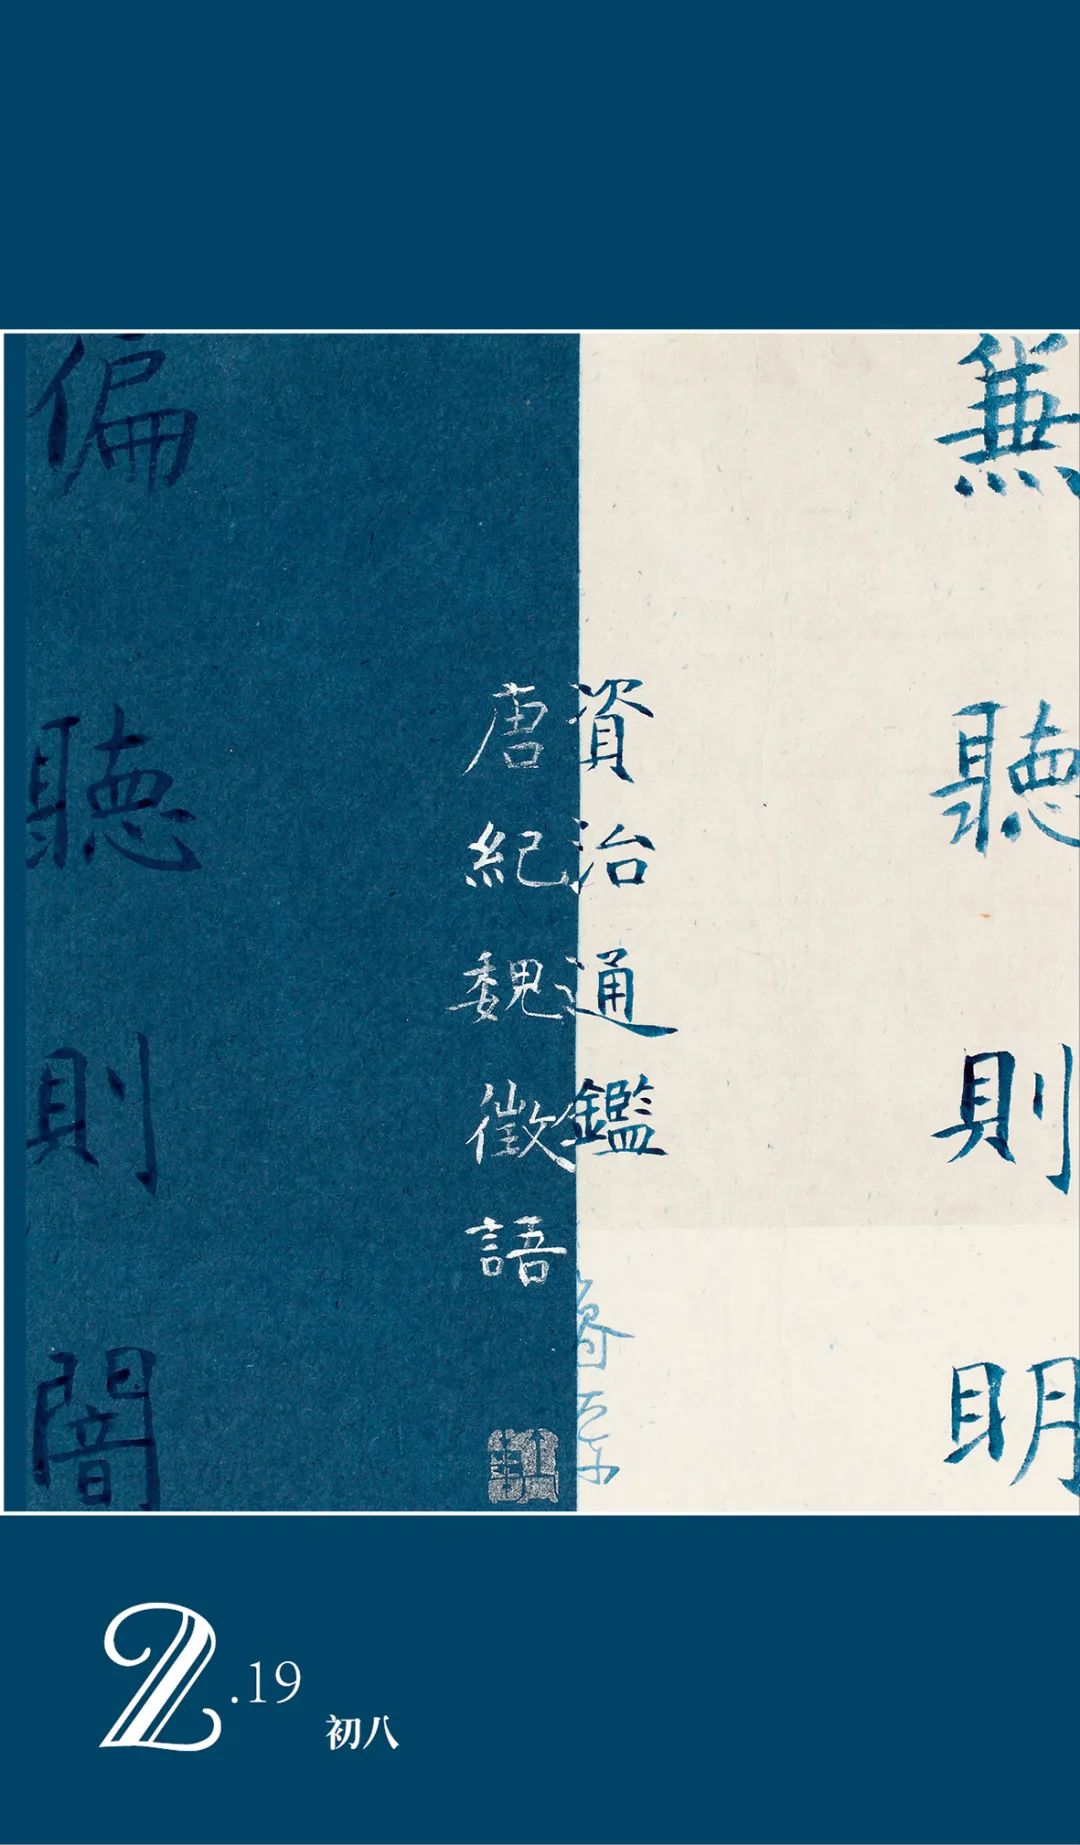 兼聽則明
偏聽則闇
資治通鑑
唐紀魏徵語
2.19
初八